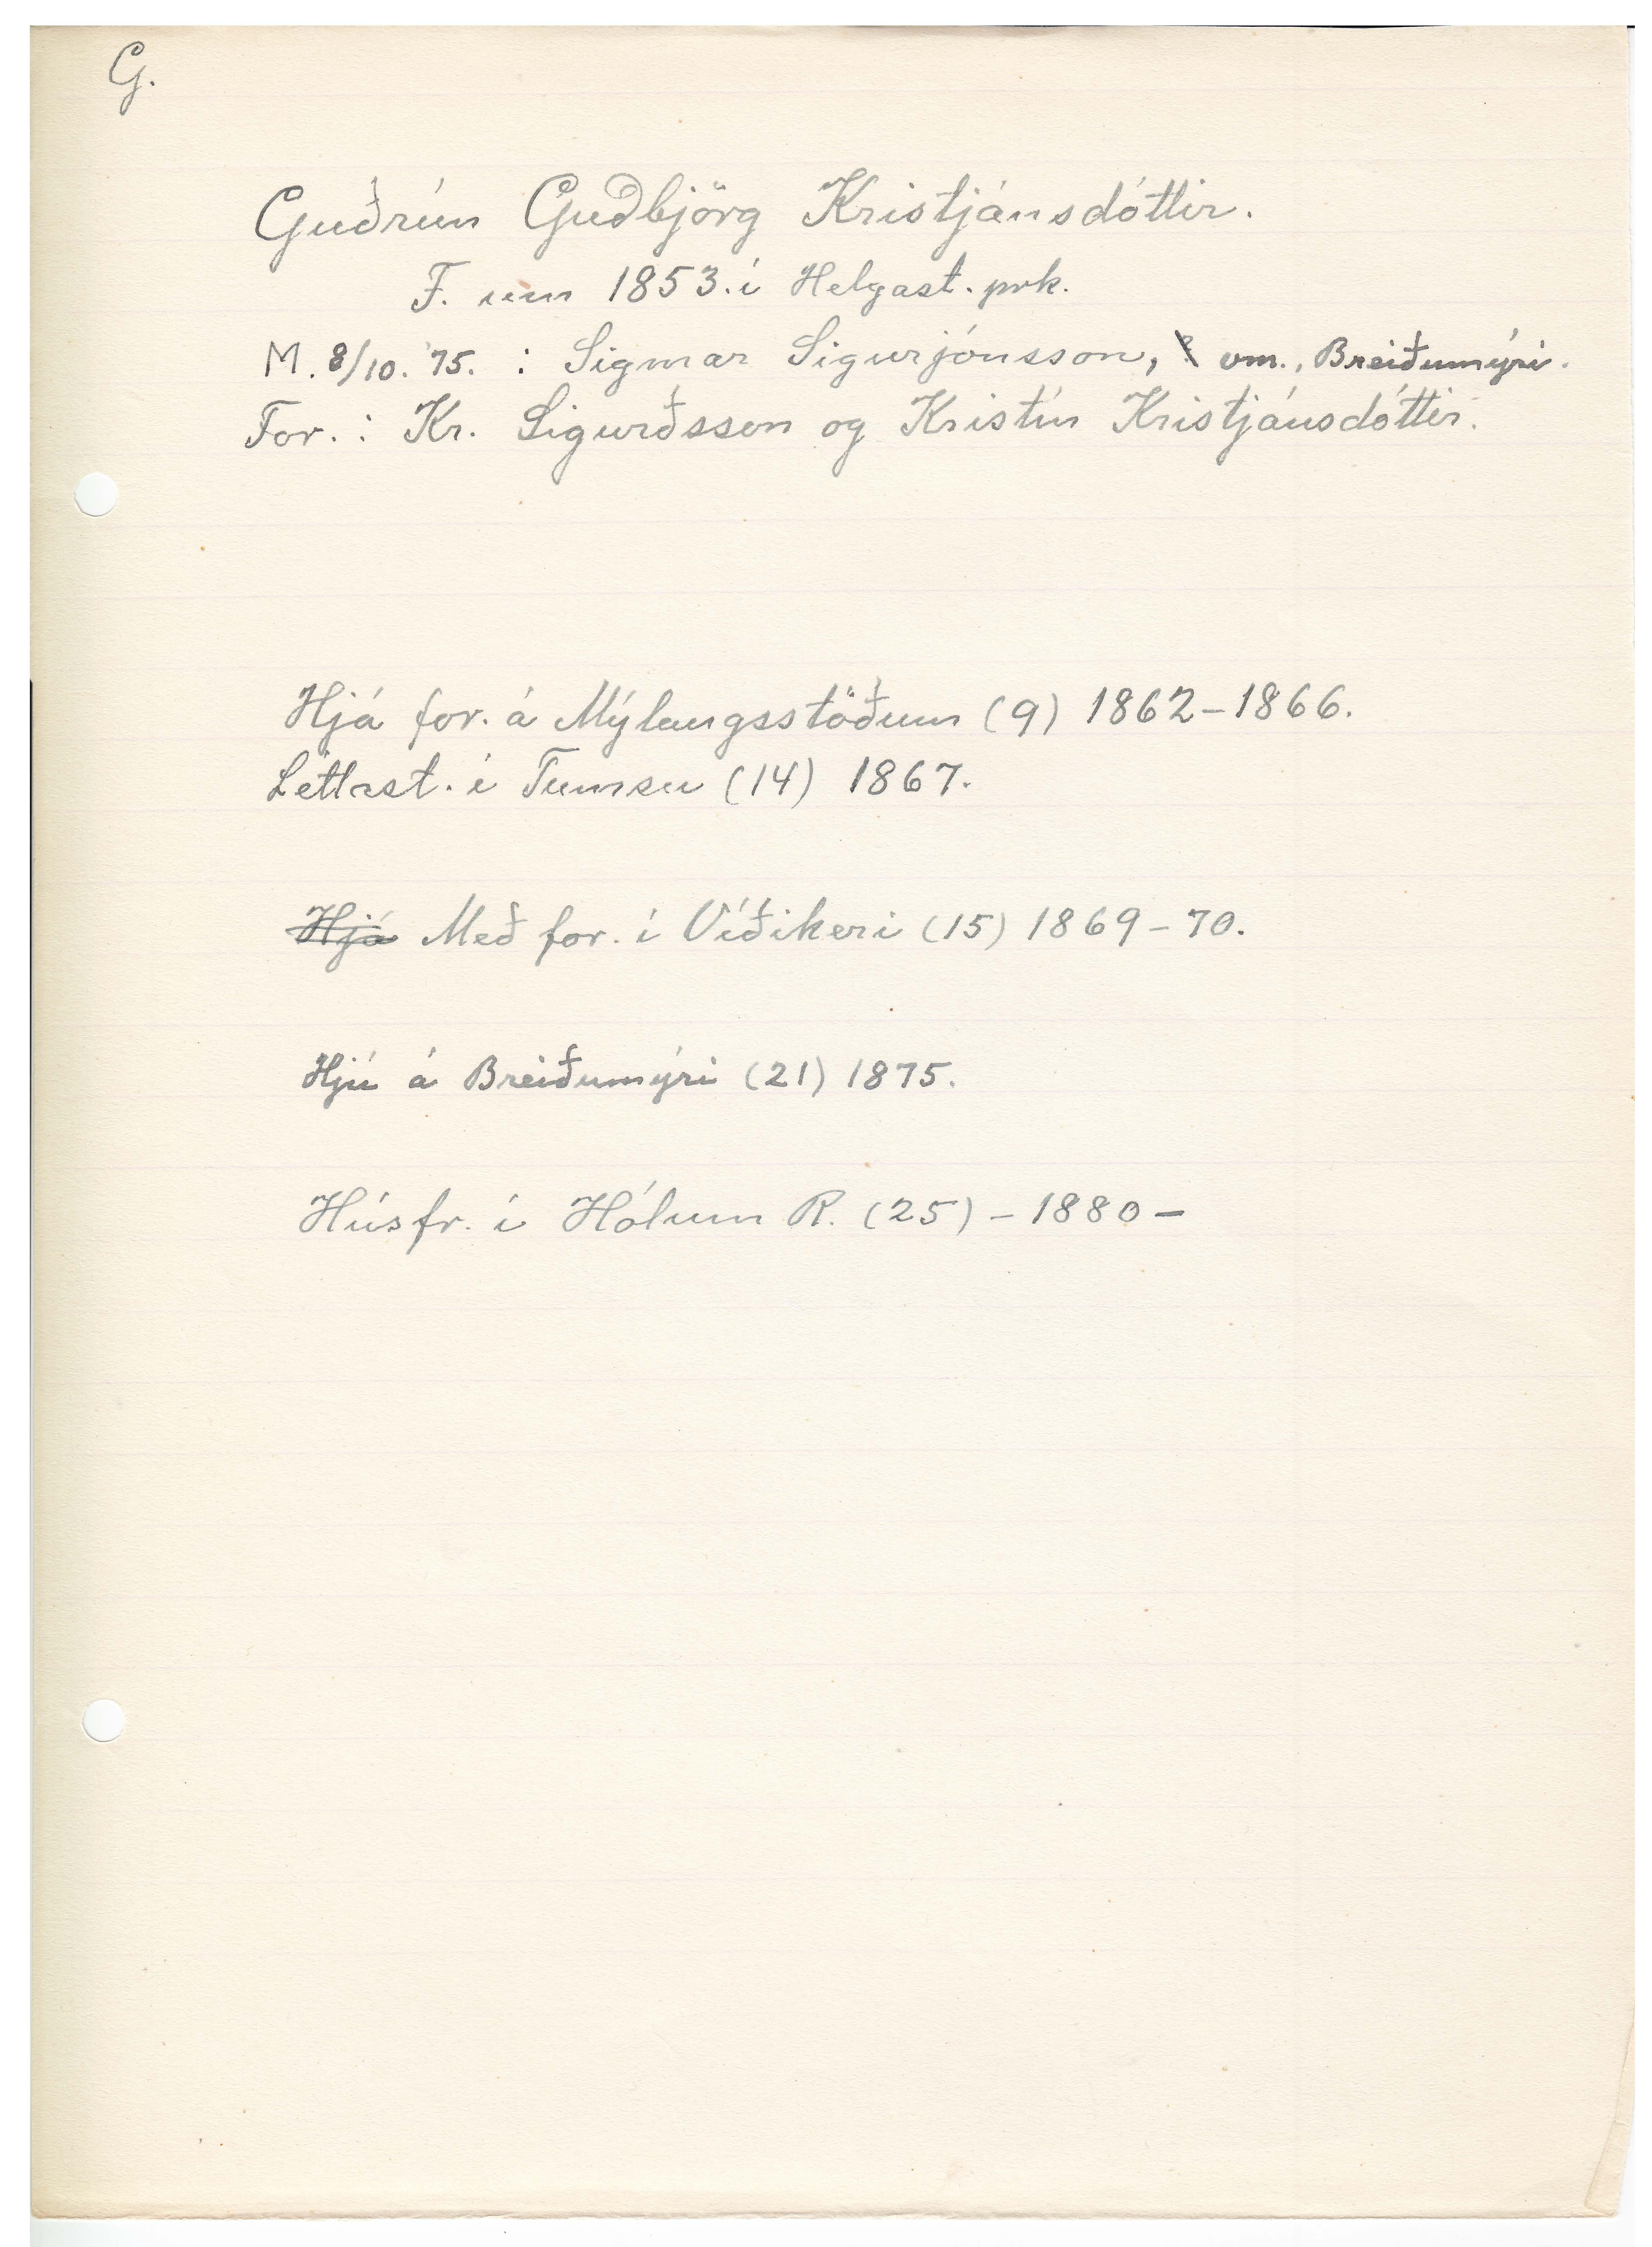 G.
Guðrún Guðbjörg Kristjánsdóttir.
F. um 1853. í Helgast. prk.
M. 8/10. '75. : Sigmar Sigurjónsson, vm., Breiðumýri.
For. : Kr. Sigurðsson og Kristín Kristjánsdóttir.
Hjá for. á Mýlaugsstöðum (9) 1862-1866.
Léttast. í Tumsu (14) 1867.
Hjá Með for. í Víðikeri (15) 1869-70.
Hjú á Breiðumýri (21) 1875.
Húsfr. í Hólum R. (25) - 1880 -